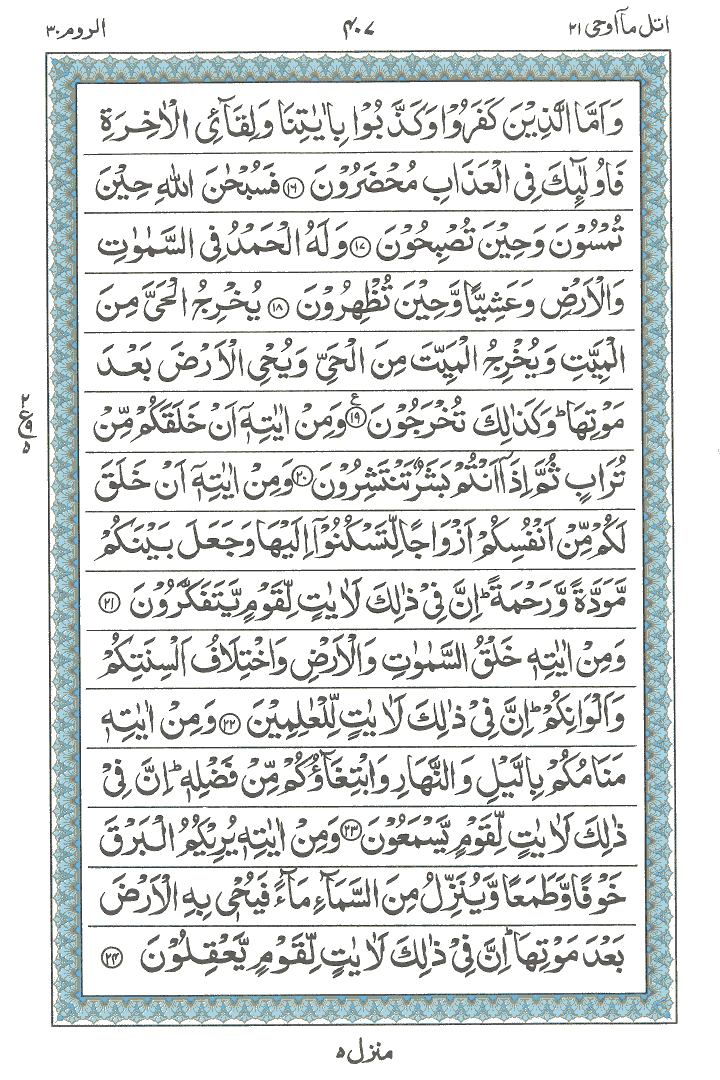 اتل مآ اوحی ۲۱ ۴۰۷ الروم ۳۰
وَاَمَّا الَّذِيْنَ كَفَرُوْا وَكَذَّبُوْا بِاٰيٰتِنَا وَلِقَآئِ الْاٰخِرَةِ
فَاُولٰٓئِكَ فِى الْعَذَابِ مُحْضَرُوْنَ ﴿۱۶﴾ فَسُبْحٰنَ اللّٰهِ حِيْنَ
تُمْسُوْنَ وَحِيْنَ تُصْبِحُوْنَ ﴿۱۷﴾ وَلَهُ الْحَمْدُ فِى السَّمٰوٰتِ
وَالْاَرْضِ وَعَشِيًّا وَّحِيْنَ تُظْهِرُوْنَ ﴿۱۸﴾ يُخْرِجُ الْحَىَّ مِنَ
الْمَيِّتِ وَيُخْرِجُ الْمَيِّتَ مِنَ الْحَىِّ وَيُحْىِ الْاَرْضَ بَعْدَ
مَوْتِهَا ؕ وَكَذٰلِكَ تُخْرَجُوْنَ ﴿۱۹﴾ ع وَمِنْ اٰيٰتِهٖۤ اَنْ خَلَقَكُمْ مِّنْ
تُرَابٍ ثُمَّ اِذَاۤ اَنْتُمْ بَشَرٌ تَنْتَشِرُوْنَ ﴿۲۰﴾ وَمِنْ اٰيٰتِهٖۤ اَنْ خَلَقَ
لَكُمْ مِّنْ اَنْفُسِكُمْ اَزْوَاجًا لِّتَسْكُنُوْۤا اِلَيْهَا وَجَعَلَ بَيْنَكُمْ
مَّوَدَّةً وَّرَحْمَةً ؕ اِنَّ فِىْ ذٰلِكَ لَاٰيٰتٍ لِّقَوْمٍ يَّتَفَكَّرُوْنَ ﴿۲۱﴾
وَمِنْ اٰيٰتِهٖ خَلْقُ السَّمٰوٰتِ وَالْاَرْضِ وَاخْتِلَافُ اَلْسِنَتِكُمْ
وَاَلْوَانِكُمْ ؕ اِنَّ فِىْ ذٰلِكَ لَاٰيٰتٍ لِّلْعٰلِمِيْنَ ﴿۲۲﴾ وَمِنْ اٰيٰتِهٖ
مَنَامُكُمْ بِالَّيْلِ وَالنَّهَارِ وَابْتِغَآؤُكُمْ مِّنْ فَضْلِهٖ ؕ اِنَّ فِىْ
ذٰلِكَ لَاٰيٰتٍ لِّقَوْمٍ يَّسْمَعُوْنَ ﴿۲۳﴾ وَمِنْ اٰيٰتِهٖ يُرِيْكُمُ الْبَرْقَ
خَوْفًا وَّطَمَعًا وَّيُنَزِّلُ مِنَ السَّمَآءِ مَآءً فَيُحْىٖ بِهِ الْاَرْضَ
بَعْدَ مَوْتِهَا ؕ اِنَّ فِىْ ذٰلِكَ لَاٰيٰتٍ لِّقَوْمٍ يَّعْقِلُوْنَ ﴿۲۴﴾
۲
ع۹
۵
منزل ۵